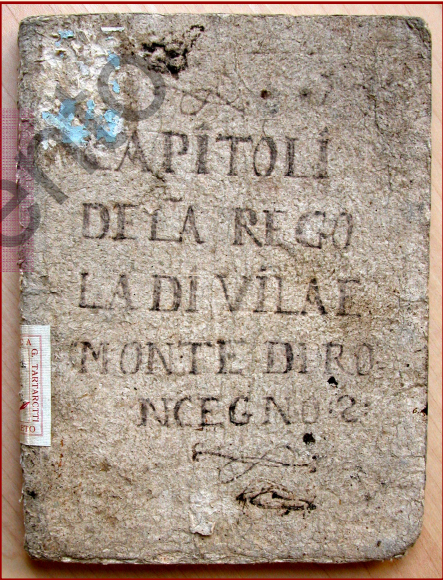 CAPITOLI
DELA REGO
LA DI VILA E
MONTE DI RO
NCEGNO :2:
G. TARTAROTTI